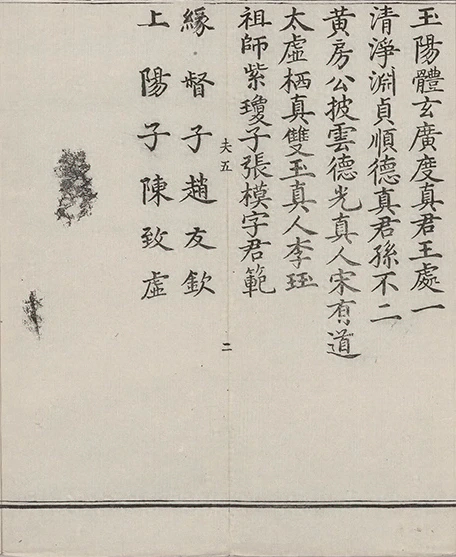 玉陽體玄廣度真君王處一
清淨淵貞順德真君孫不二
黃房公披雲德光真人宋有道
太虛栖真雙玉真人李珏
祖師紫瓊子張模字君範
夫五
二
緣督子趙友欽
上陽子陳致虛